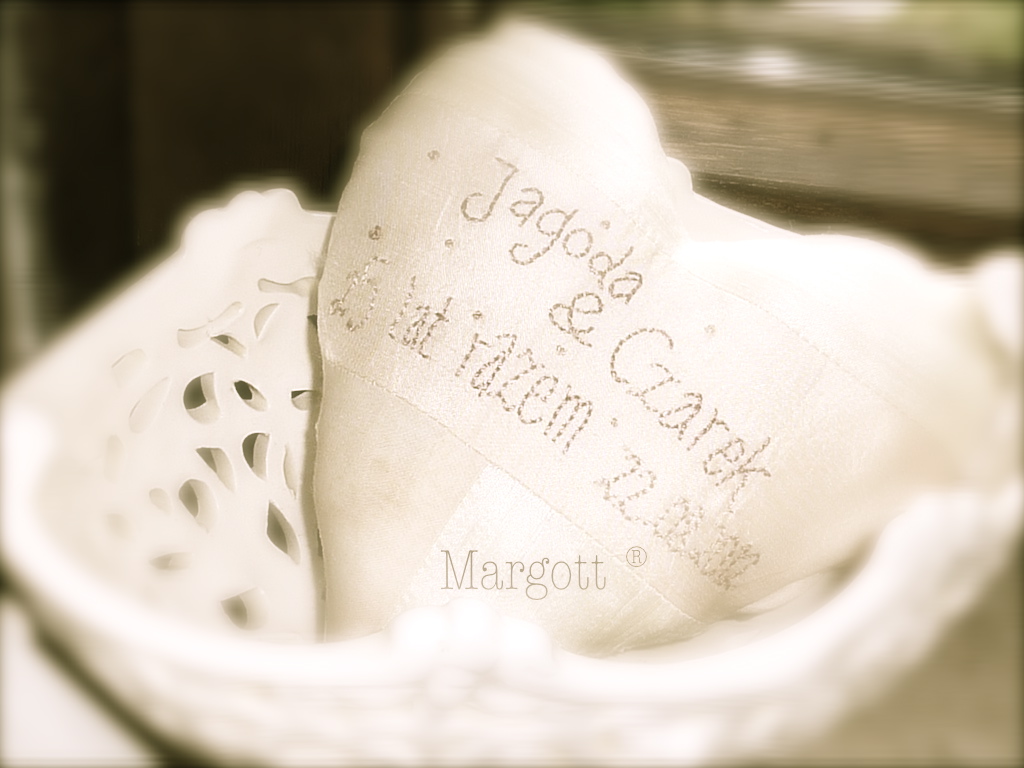 Jagoda
& Czarek
25 lat razem
Margott ®